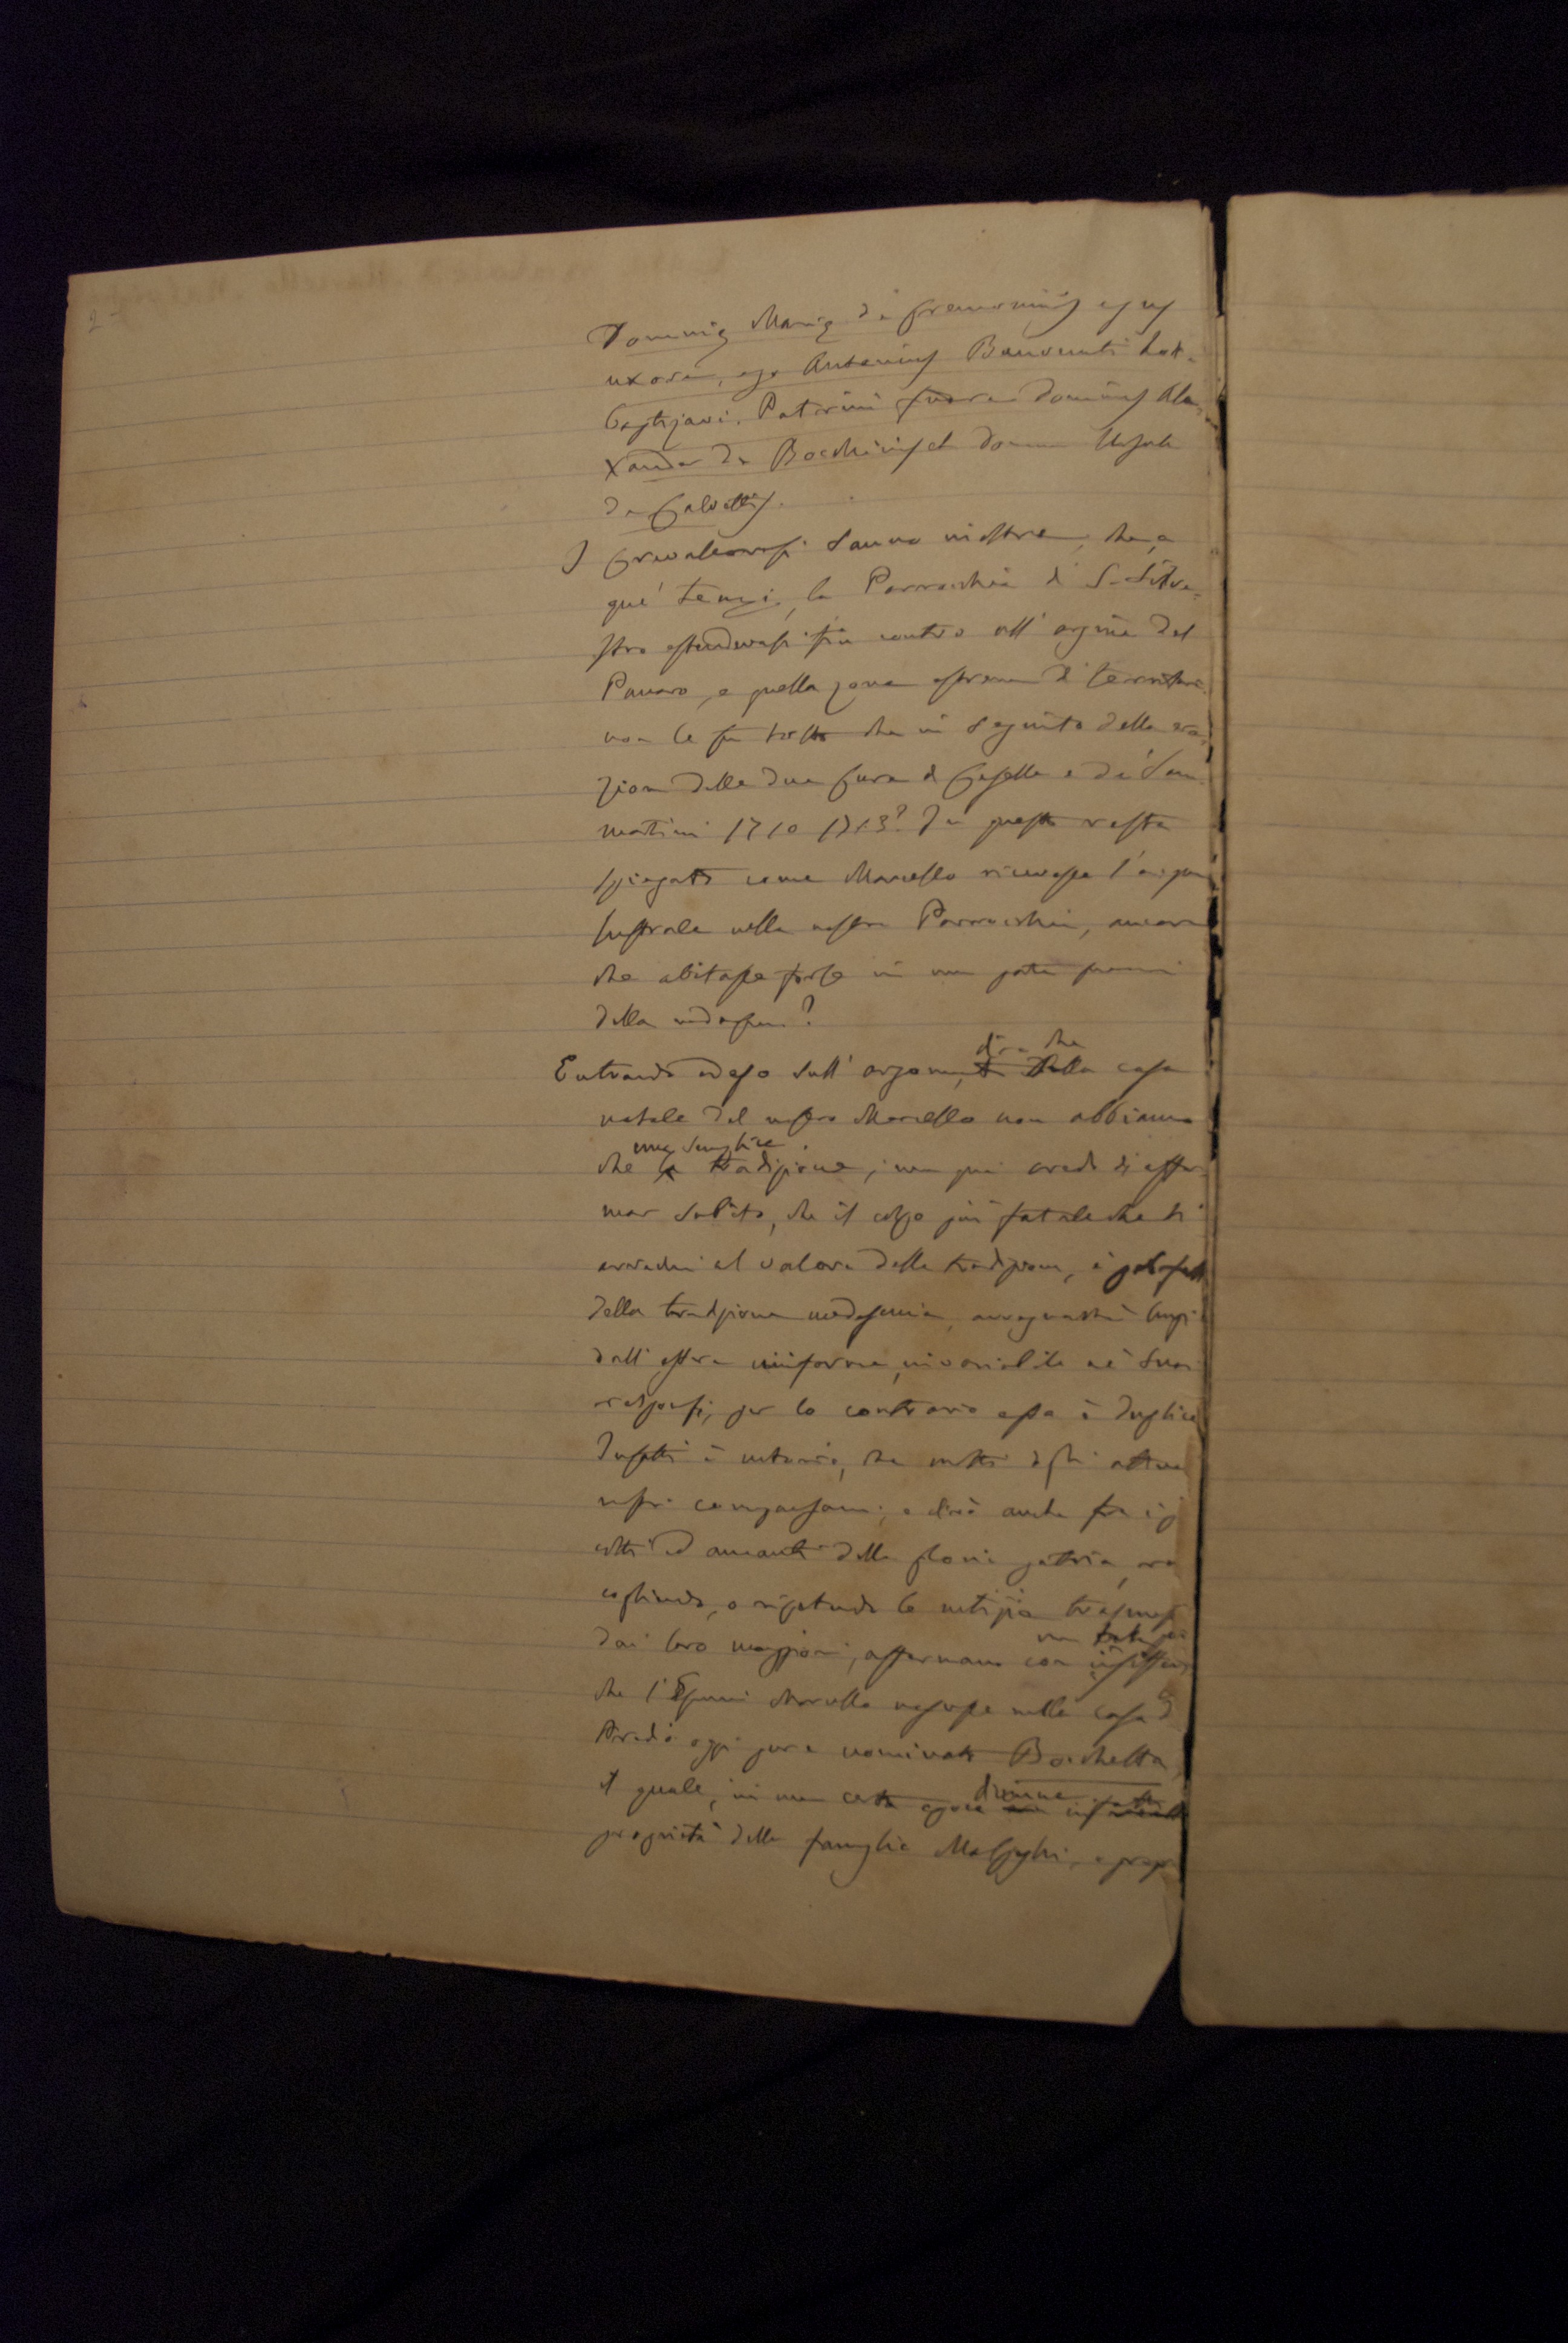 2
uxore, ego Antonius Benvenuti
Baptizavi. Patrini fuere Dominus Ale-
xander De Bocchinis et Domina Ursula
De Calvettis.
I Crevalcoresi sanno inoltre, che a
que' tempi, la Parrocchia di S. Silve-
stro estendevasi fin contro all' argine del
Panaro, e quella zona estrema di territorio
non le fu tolta che in seguito della ere-
zione delle due Cure di Caselle e di Sam
martini 1710 1713? In questo resta
spiegato come Marcello ricevesse l'acqua
lustrale nella nostra Parrocchia, ancora
che abitasse forse in un
della medesima?
Entrando adesso sull' argomento della casa
dirò che
natale del nostro Marcello non abbiamo
una semplice
che la tradizione; ma qui credo di affer
mar subito, che il colpo più fatale che si
arrechi al valore della tradizione, è
della tradizione medesima, avvegnachè lungi
dall' essere uniforme, invariabile ne' suoi
responsi, per lo contrario essa è duplice
Infatti è notorio, che molti degli attuali
nostri compaesani, e dirò anche fra i più
colti ed amanti della gloria patria, rac
cogliendo, o ripetendo le notizie trasmesse
dai loro maggiori, affermano con
che l'Esimio Marcello nascesse nella casa
Predio oggi pure nominato Bocchetta
il quale, in una certa epoca divenne
proprietà della famiglia Malpighi, e